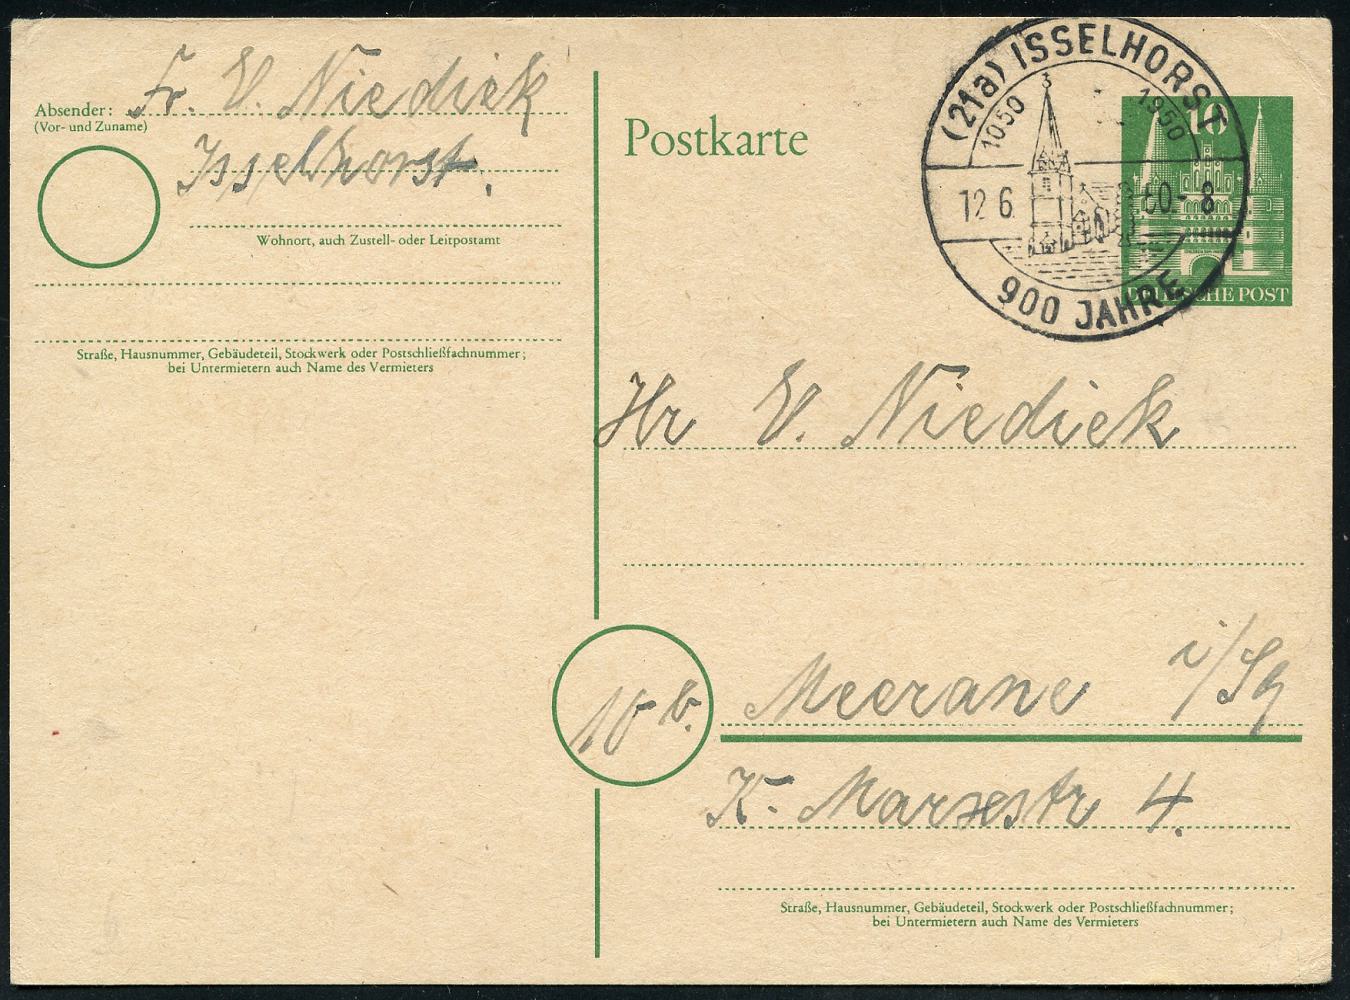 Absender: Fr. V. Niediek
(Vor- und Zuname)
Isselhorst.
Wohnort, auch Zustell- oder Leitpostamt
Straße, Hausnummer, Gebäudeteil, Stockwerk oder Postschließfachnummer;
bei Untermietern auch Name des Vermieters
Postkarte
(21a) ISSELHORST
1050 1950
12 6. 50 - 8
900 JAHRE
10
DEUTSCHE POST
Hr V. Niediek
10 b.
Meerane i/Sa
K. Marxestr 4.
Straße, Hausnummer, Gebäudeteil, Stockwerk oder Postschließfachnummer;
bei Untermietern auch Name des Vermieters